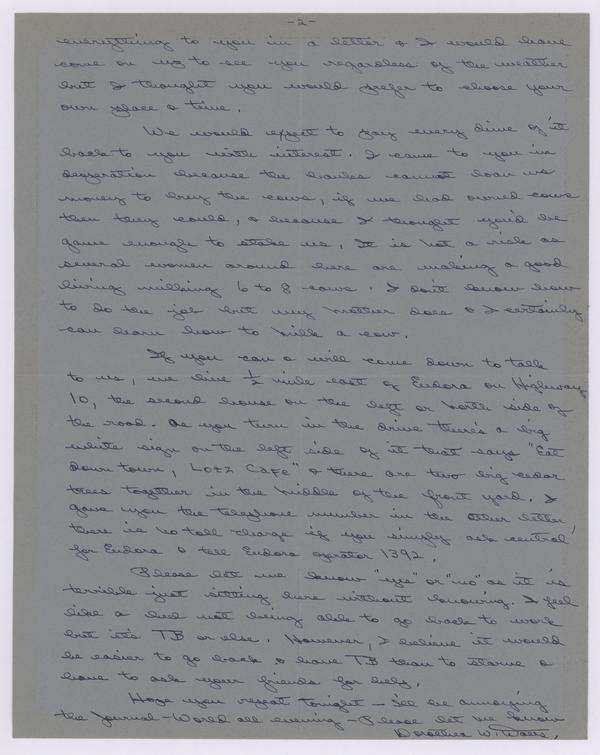 -2-
everything to you in a letter & I would have
come on up to see you regardless of the weather
but I thought you would prefer to choose your
own place & time.
We would expect to pay every dime of it
back to you with interest. I came to you in
desperation because the banks cannot loan us
money to buy the cows, if we had owned cows
then they could, & because I thought you'd be
game enough to stake us. It is not a risk as
several women around here are making a good
living milking 6 to 8 cows. I don't know how
to do the job but my mother does & I certainly
can learn how to milk a cow.
If you can & will come down to talk
to us, we live ½ mile east of Eudora on Highway
10, the second house on the left or north side of
the road. As you turn in the drive there's a big
white sign on the left side of it that says "Eat
Down town, Lotz Cafe" & there are two big cedar
trees together in the middle of the front yard. I
gave you the telephone number in the other letter,
there is no toll charge if you simply ask central
for Eudora & tell Eudora operator 1392.
Please let me know "yes" or "no" as it is
terrible just sitting here without knowing. I feel
like a heel not being able to go back to work
but it's TB or else. However, I believe it would
be easier to go back & have TB than to starve &
have to ask your friends for help.
Hope you repeat tonight – I'll be annoying
the Journal-World all evening – Please let me know
Dorothea W. Watts.